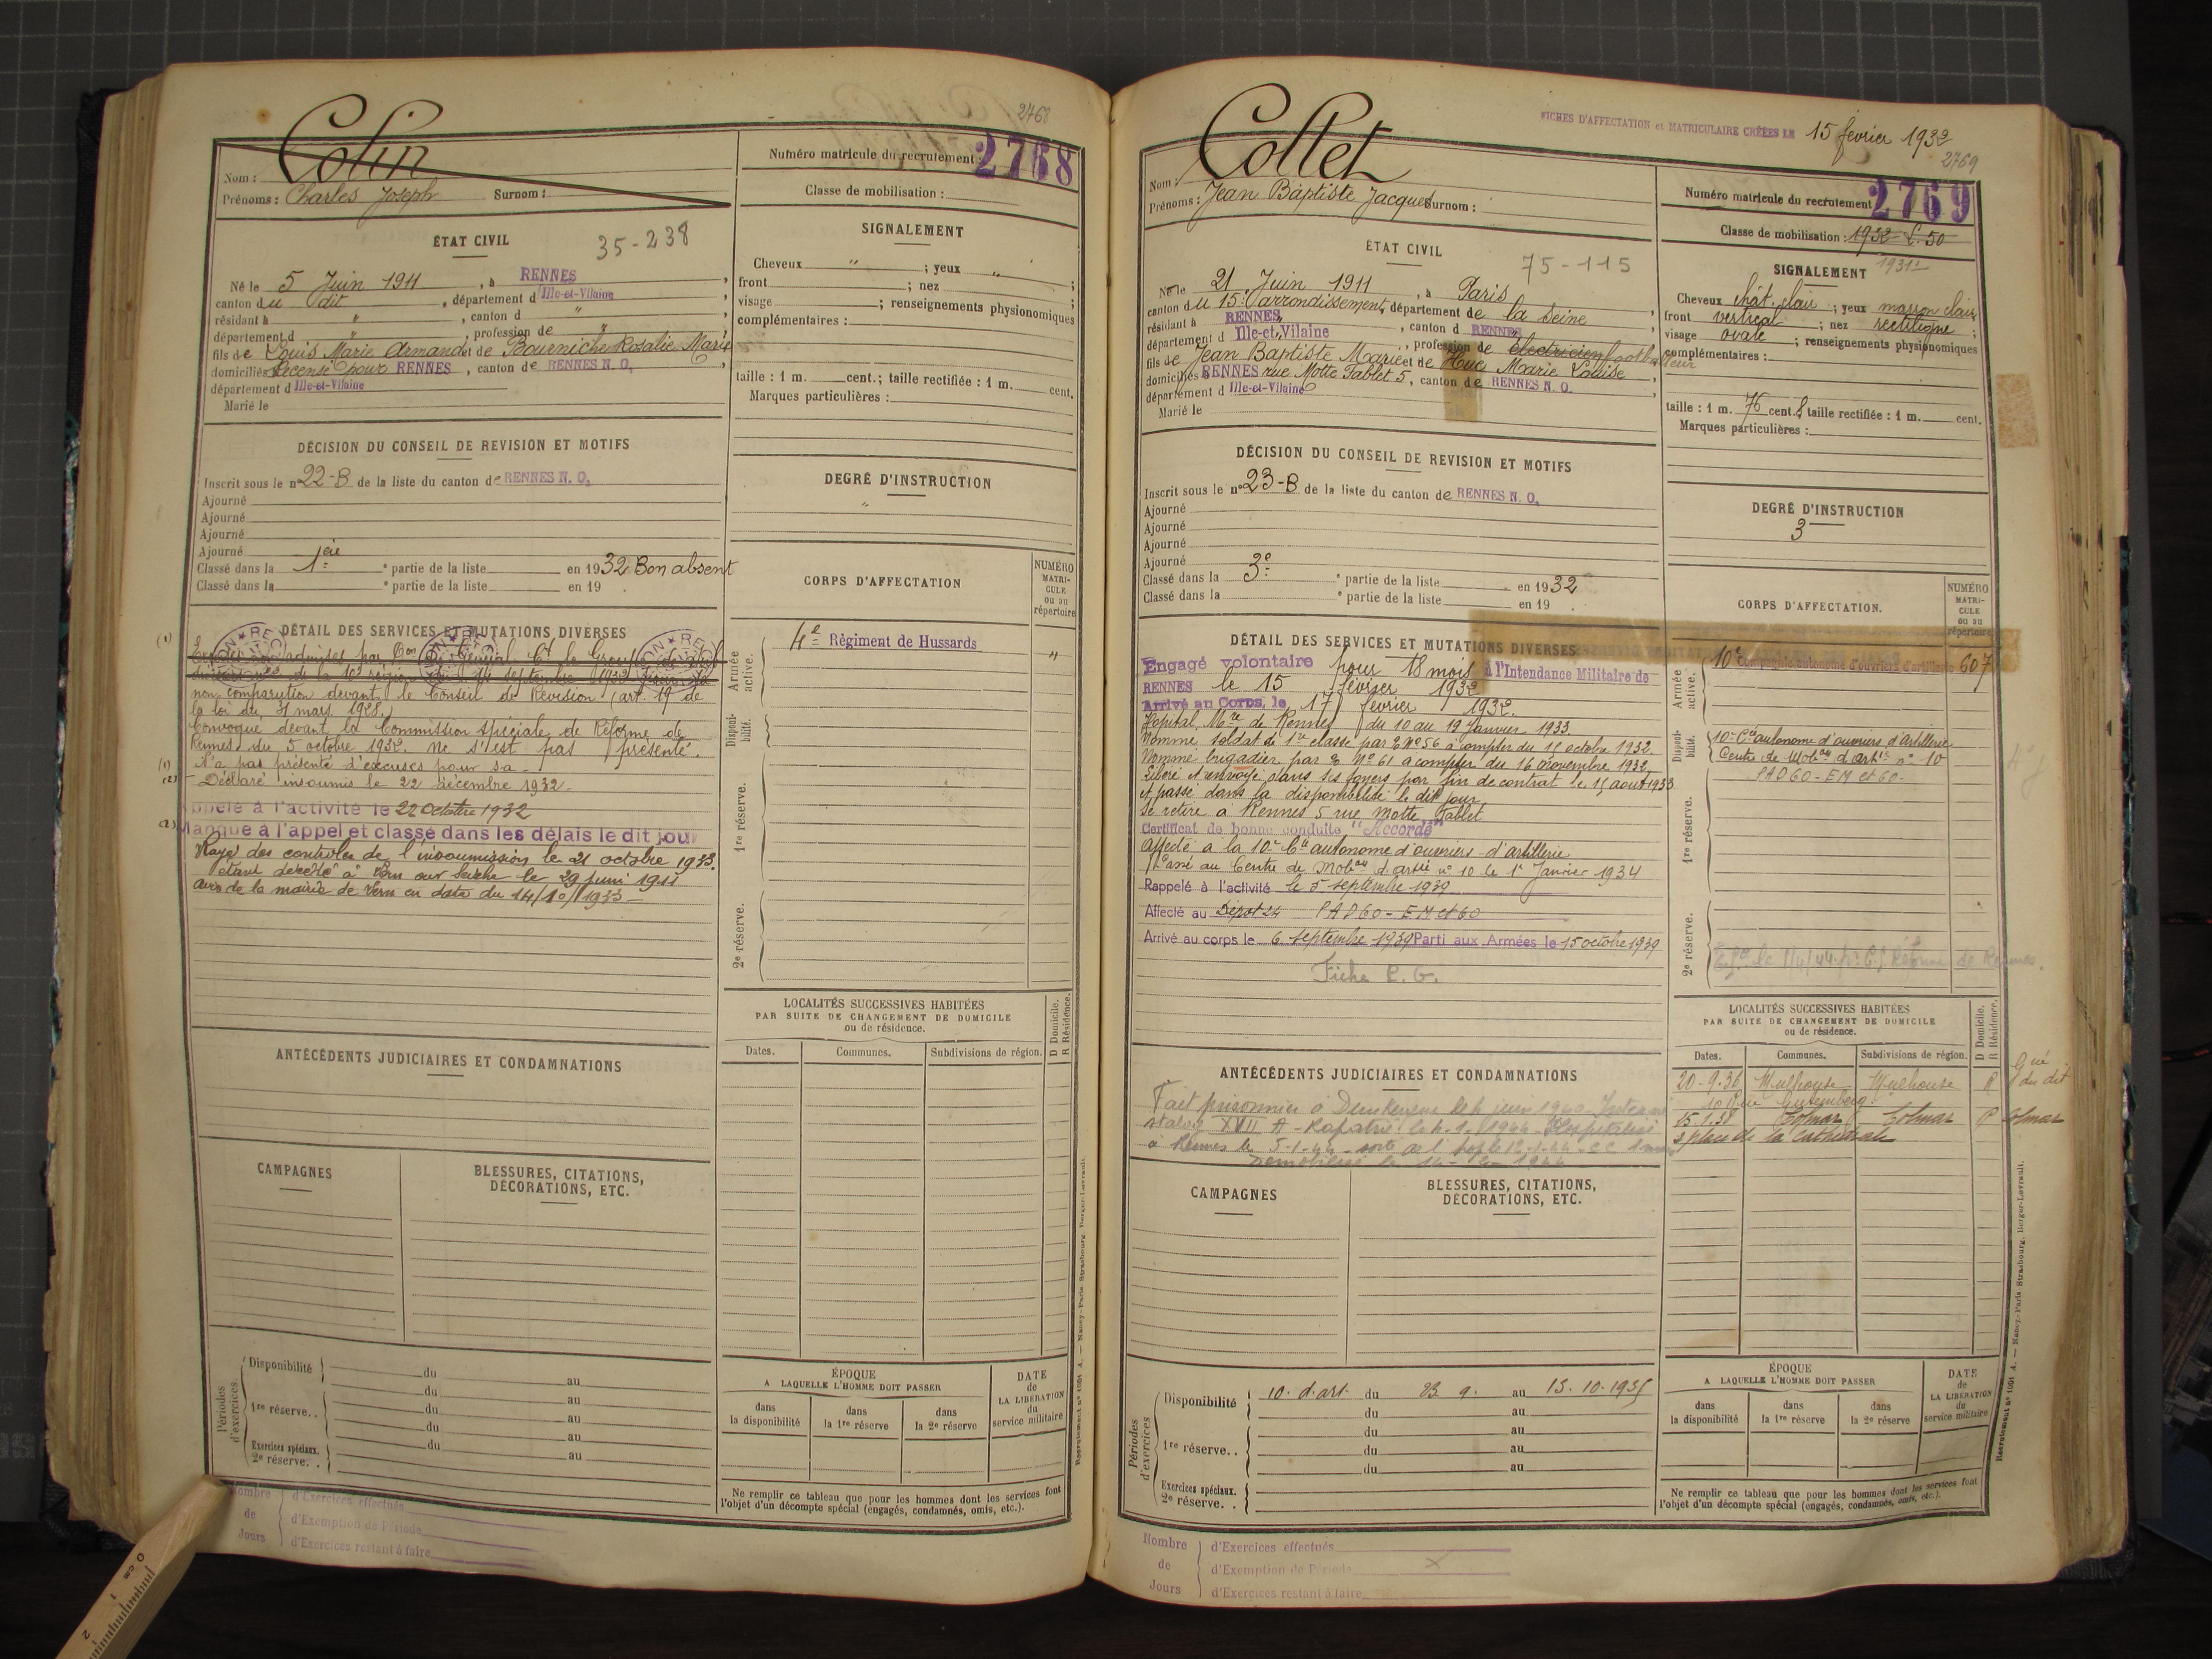 2768
Colin
Nom :
Prénoms : Charles Joseph Surnom :
Numéro matricule du recrutement : 2768
Classe de mobilisation :
ÉTAT CIVIL
35-238
Né le 5 Juin 1911, à RENNES,
canton du dit, département d Ille-et-Vilaine,
résidant à ", canton d ",
département d ", profession de ",
fils de Louis Marie Armand et de Bourniche Rosalie Marie
domiciliés Recensé pour RENNES, canton de RENNES N. O.,
département d Ille-et-Vilaine
Marié le
SIGNALEMENT
Cheveux " ; yeux " ;
front ; nez ;
visage ; renseignements physionomiques
complémentaires :
taille : 1 m. cent.; taille rectifiée : 1 m. cent.
Marques particulières :
DÉCISION DU CONSEIL DE REVISION ET MOTIFS
Inscrit sous le n° 22-B de la liste du canton de RENNES N. O.
Ajourné
Ajourné
Ajourné
Ajourné
Classé dans la 1ère partie de la liste en 1932 Bon absent
Classé dans la e partie de la liste en 19 .
DEGRÉ D'INSTRUCTION
"
CORPS D'AFFECTATION
NUMÉRO MATRI-CULE ou au répertoire
DÉTAIL DES SERVICES ET MUTATIONS DIVERSES
(1)
non comparution devant le Conseil de Revision (art. 19 de
la loi du 31 mars 1928.)
Convoqué devant la Commission spéciale de Réforme de
Rennes du 5 octobre 1932. ne s'est pas présenté.
(1) N'a pas présenté d'excuses pour sa
(2) Déclaré insoumis le 22 décembre 1932.
Appelé à l'activité le 22 Octobre 1932
(2) Manque à l'appel et classé dans les délais le dit jour
Rayé des controles de l'insoumission le 21 octobre 1933.
étant décédé à Vern sur Seiche le 29 juin 1911
avis de la mairie de Vern en date du 14/10/1933
Armée active.
4e Régiment de Hussards "
Disponi-bilité.
1re réserve.
2e réserve.
LOCALITÉS SUCCESSIVES HABITÉES
PAR SUITE DE CHANGEMENT DE DOMICILE
ou de résidence.
D Domicile. R Résidence.
Dates. Communes. Subdivisions de région.
ANTÉCÉDENTS JUDICIAIRES ET CONDAMNATIONS
CAMPAGNES
BLESSURES, CITATIONS,
DÉCORATIONS, ETC.
Périodes d'exercices.
Disponibilité du au
du au
1re réserve. . du au
du au
Exercices spéciaux.
2e réserve. . du au
ÉPOQUE
A LAQUELLE L'HOMME DOIT PASSER
dans la disponibilité
dans la 1re réserve
dans la 2e réserve
DATE de LA LIBÉRATION du service militaire
Ne remplir ce tableau que pour les hommes dont les services font
l'objet d'un décompte spécial (engagés, condamnés, omis, etc.).
Nombre de Jours
d'Exercices effectués
d'Exemption de Période
d'Exercices restant à faire
FICHES D'AFFECTATION et MATRICULAIRE CRÉÉES LE 15 fevrier 1932
2769
Collet
Nom :
Prénoms : Jean Baptiste Jacques Surnom :
Numéro matricule du recrutement 2769
Classe de mobilisation : 1932 - C. 50
1931
ÉTAT CIVIL
75-115
Né le 21 Juin 1911, à Paris
canton du 15e arrondissement, département de la Seine,
résidant à RENNES, canton d RENNES,
département d Ille-et-Vilaine, profession de électricien footballeur
fils de Jean Baptiste Marie et de Hue Marie Louise
domiciliés RENNES rue Motte Fablet 5, canton de RENNES N. O.,
département d Ille-et-Vilaine
Marié le
SIGNALEMENT
Cheveux chât. clair ; yeux marron clair
front vertical ; nez rectiligne ;
visage ovale ; renseignements physionomiques
complémentaires :
taille : 1 m. 76 cent. ; taille rectifiée : 1 m. cent.
Marques particulières :
DÉCISION DU CONSEIL DE REVISION ET MOTIFS
Inscrit sous le n° 23-B de la liste du canton de RENNES N. O.
Ajourné
Ajourné
Ajourné
Ajourné
Classé dans la 3e partie de la liste en 1932
Classé dans la e partie de la liste en 19 .
DEGRÉ D'INSTRUCTION
3
CORPS D'AFFECTATION.
NUMÉRO MATRI-CULE ou au répertoire
DÉTAIL DES SERVICES ET MUTATIONS DIVERSES
Engagé volontaire pour 18 mois à l'Intendance Militaire de
RENNES le 15 février 1932
Arrivé au Corps, le 17 février 1932.
Hopital Mre de Rennes du 10 au 19 Janvier 1933.
Nommé soldat de 1re classe par O No 56 à compter du 15 octobre 1932.
Nommé brigadier par O No 61 à compter du 16 novembre 1932
Libéré et renvoyé dans ses foyers par fin de contrat le 15 aout 1933
et passé dans la disponibilité le dit jour
Se retire à Rennes 5 rue Motte Fablet
Certificat de bonne conduite "Accordé"
Affecté à la 10e Cie autonome d'ouvriers d'artillerie
Passé au Centre de Mobon d'artie no 10 le 1er Janvier 1934
Rappelé à l'activité le 5 septembre 1939
Affecté au Dépot 24 PAD 60 - EM et 60
Arrivé au corps le 6 septembre 1939 Parti aux Armées le 15 octobre 1939
Fiche P. G.
Armée active.
10e Compagnie autonome d'ouvriers d'artillerie 607
Disponi-bilité.
10e Cie autonome d'ouvriers d'Artillerie
Centre de Mobon d'artie no 10
PAD 60 - EM et 60
1re réserve.
2e réserve.
LOCALITÉS SUCCESSIVES HABITÉES
PAR SUITE DE CHANGEMENT DE DOMICILE
ou de résidence.
D Domicile. R Résidence.
Dates. Communes. Subdivisions de région.
20-9-36 Mulhouse Mulhouse R du dit
10 Rue Gutemberg
15.1.38 Colmar Colmar R Colmar
3 place de la Cathédrale
ANTÉCÉDENTS JUDICIAIRES ET CONDAMNATIONS
Fait prisonnier à Dunkerque le 4 juin 1940 Interné
stalag XVII A - Rapatrié le 4.1.1944 - Hospitalisé
à Rennes le 5-1-44
Démobilisé le
CAMPAGNES
BLESSURES, CITATIONS,
DÉCORATIONS, ETC.
Périodes d'exercices
Disponibilité 10. d'art. du 23. 9. au 13. 10. 1935
du au
du au
1re réserve. . du au
du au
Exercices spéciaux.
2e réserve. .
ÉPOQUE
A LAQUELLE L'HOMME DOIT PASSER
dans la disponibilité
dans la 1re réserve
dans la 2e réserve
DATE de LA LIBÉRATION du service militaire
Ne remplir ce tableau que pour les hommes dont les services font
l'objet d'un décompte spécial (engagés, condamnés, omis, etc.).
Nombre de Jours
d'Exercices effectués
d'Exemption de Période X
d'Exercices restant à faire